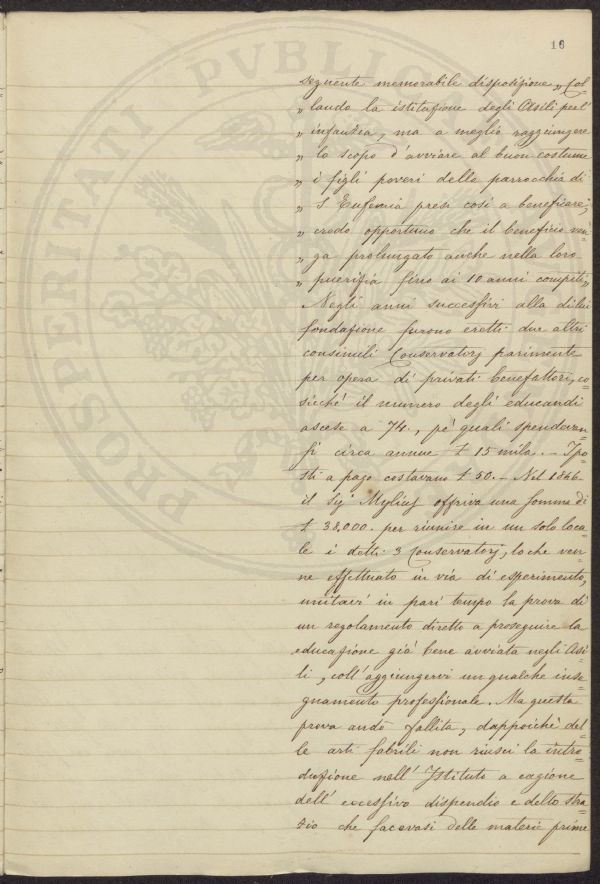 16
seguente memorabile disposizione „ Col=
„ laudo la istituzione degli Asili per l'
„ infanzia, ma a meglio raggiungere
„ lo scopo d'avviare al buon costume
„ i figli poveri della parrocchia di
„ S Eufemia presi così a beneficare,
„ credo opportuno che il beneficio ven=
„ ga prolungato anche nella loro
„ puerizia fino ai 10 anni compiti„
Negli anni successivi alla di lui
fondazione furono eretti due altri
consimili Conservatorj parimente
per opera di privati benefattori, co=
sicchè il numero degli educandi
ascese a 74., pe' quali spendevan=
si circa annue £ 15 mila. — I po=
sti a pago costavano £ 50. — Nel 1846
il Sig.r Mylius offriva una somma di
£ 38,000. per riunire in un solo loca=
le i detti 3 Conservatorj, lo che ven=
ne effettuato in via di esperimento,
unitavi in pari tempo la prova di
un regolamento diretto a proseguire la
educazione già bene avviata negli Asi=
li, coll'aggiungervi un qualche inse=
gnamento professionale. Ma questa
prova andò fallita, dappoichè del=
le arti fabrili non riuscì la intro=
duzione nell'Istituto a cagione
dell'eccessivo dispendio e dello stra=
zio che facevasi delle materie prime
PROSPERITATI PVBLICAE